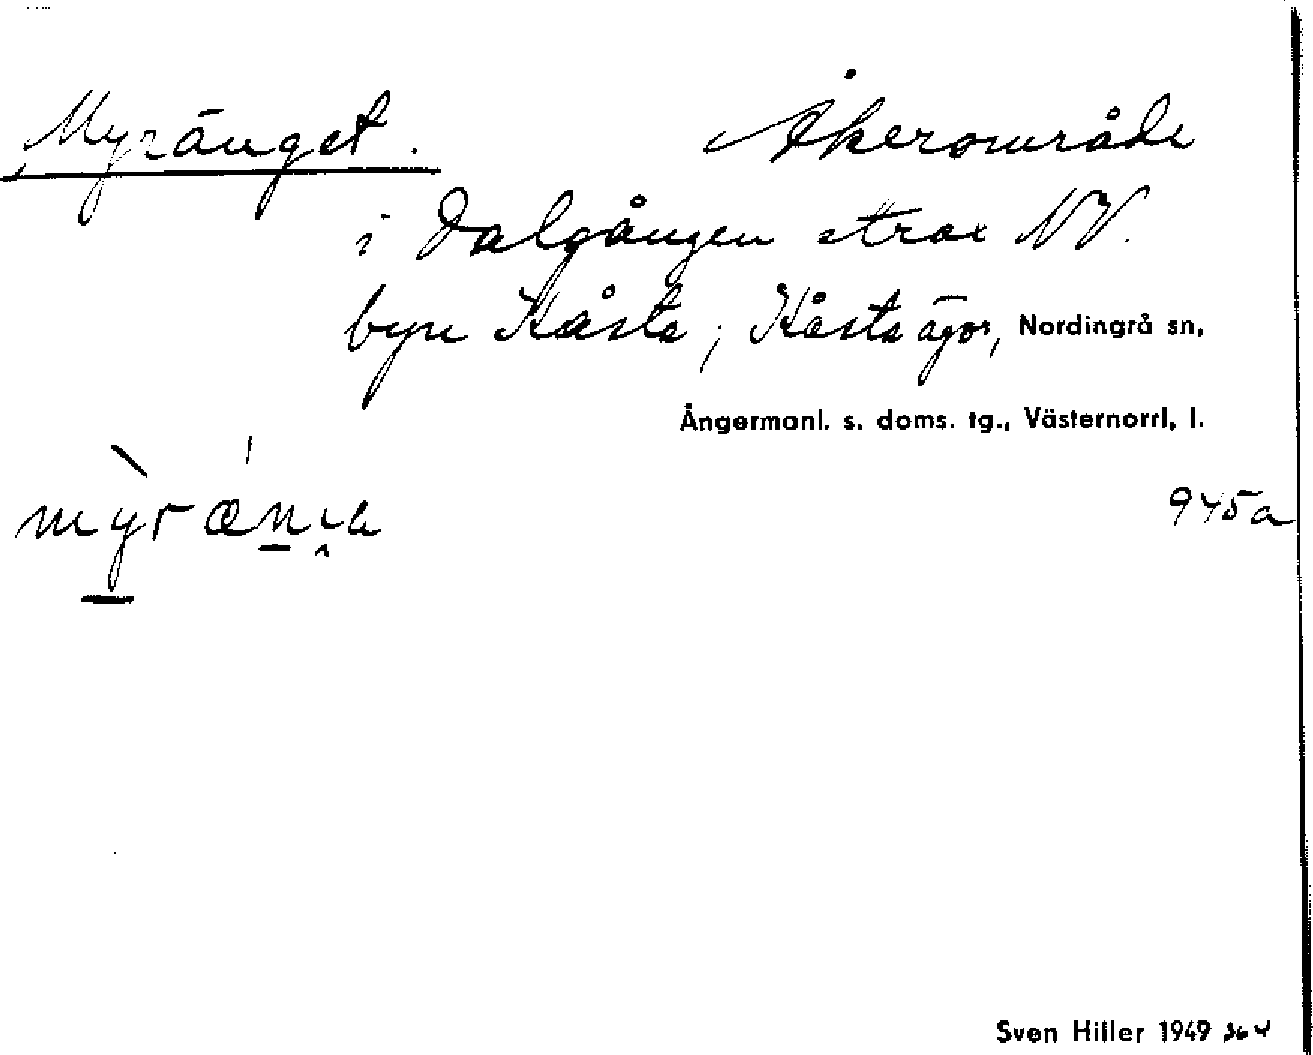 Myränget. Åkerområde
i dalgången strax NV.
byn Kåsta; Kåsta ägor, Nordingrå sn,
Ångermanl. s. doms. tg., Västernorrl. l.
945a
Sven Hiller 1949